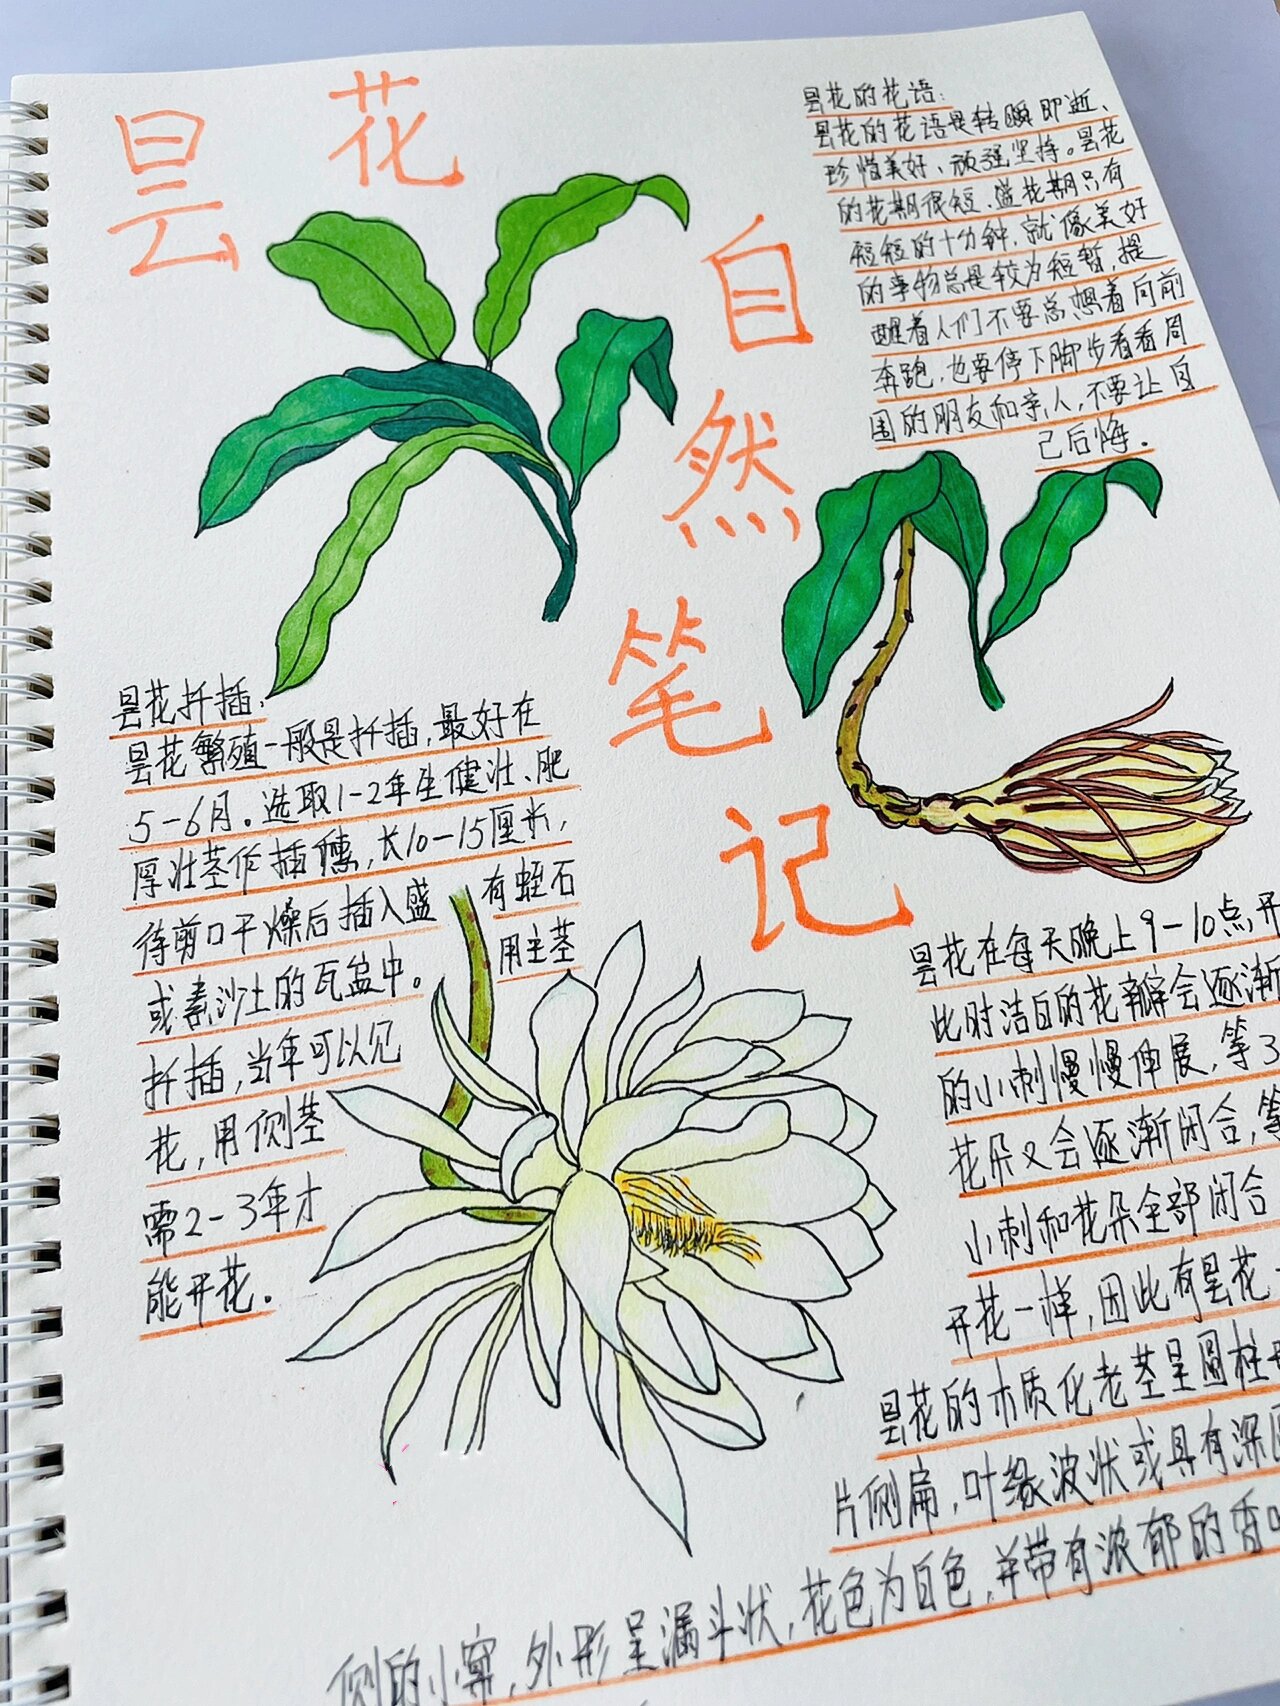 昙花
自然
笔记
昙花的花语：
昙花的花语是转瞬即逝、
珍惜美好、顽强坚持。昙花
的花期很短，盛花期只有
短短的十分钟，就像美好
的事物总是较为短暂，提
醒着人们不要总想着向前
奔跑，也要停下脚步看看周
围的朋友和亲人，不要让自
己后悔．
昙花扦插：
昙花繁殖一般是扦插，最好在
5-6月。选取1-2年生健壮、肥
厚壮茎作插穗，长10-15厘米，
待剪口干燥后插入盛有蛭石
或素沙土的瓦盆中。用主茎
扦插，当年可以见
花，用侧茎
需2-3年才
能开花。
昙花在每天晚上9-10点开
此时洁白的花瓣会逐渐
的小刺慢慢伸展，等3
花朵又会逐渐闭合，等
小刺和花朵全部闭合
开花一样，因此有昙花一
昙花的木质化老茎呈圆柱
片侧扁，叶缘波状或具有深
侧的小窠，外形呈漏斗状，花色为白色，并带有浓郁的香